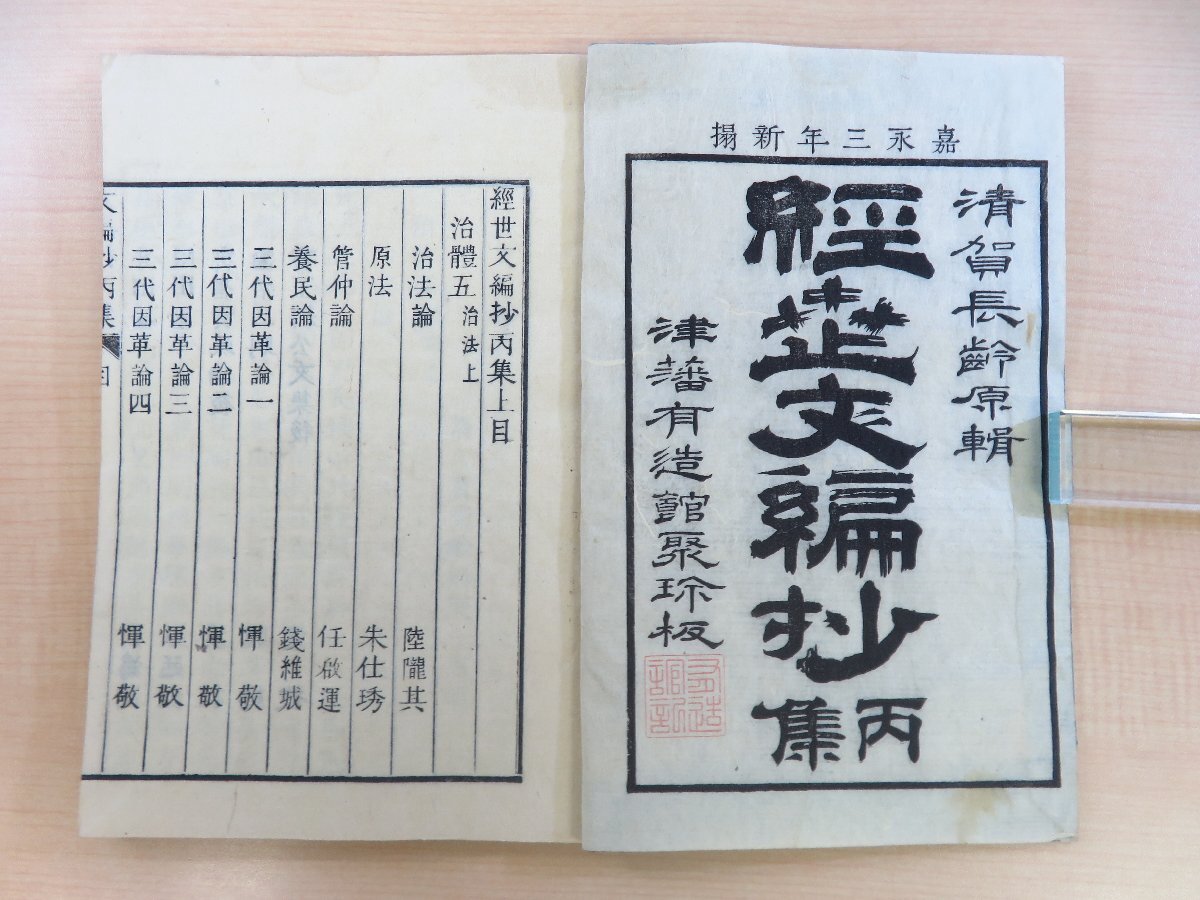 嘉永三年新搨
清賀長齡原輯
經世文編抄丙集
津藩有造館聚珍板
經世文編抄丙集上目
治體五 治法上
治法論 陸隴其
原法 朱仕琇
管仲論 任啟運
養民論 錢維城
三代因革論一 惲敬
三代因革論二 惲敬
三代因革論三 惲敬
三代因革論四 惲敬
文編抄丙集 目